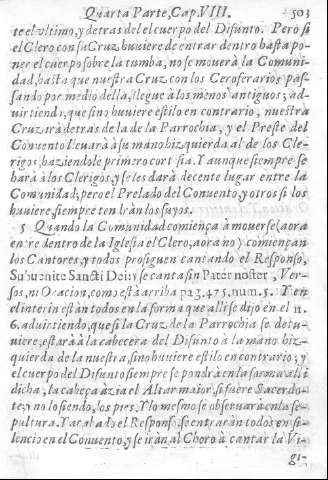 Quarta Parte, Cap. VIII. 503
te el vltimo, y detras del el cuerpo del Difunto. Pero si
el Clero con su Cruz buuiere de entrar dentro hasta po-
ner el cuerpo sobre la tumba, no se mouerà la Comuni-
dad, hasta que nuestra Cruz con los Ceroferarios pas-
sando por medio della, llegue à los menos antiguos; ad-
uirtiendo, que sino huuiere estilo en contrario, nuestra
Cruz irà detras de la de la Parrochia, y el Preste del
Conuento lleuarà à su mano bizquierda al de los Cle-
rigos, haziendole primero cortesia. Y aunque siempre se
harà à los Clerigos, y se les darà decente lugar entre la
Comunidad; pero el Prelado del Conuento, y otros si los
huuiere, siempre tendràn los suyos.
5 Quando la Comunidad comiença à mouerse (aora
entre dentro de la Iglesia el Clero, aora no) comiençan
los Cantores, y todos prosiguen cantando el Responso,
Subuenite Sancti Dei: y se canta sin Pater noster, Ver-
sos, ni Oracion, como està arriba pag. 475. num. 5. Y en
el interin estàn todos en la forma que alli se dijo en el n.
6. aduirtiendo, que si la Cruz de la Parrochia se detu-
uiere, estarà à la cabecera del Difunto à la mano biz-
quierda de la nuestra, sino huuiere estilo en contrario; y
el cuerpo del Difunto siempre se pondrà en la forma alli
dicha, la cabeça àzia el Altar maior, si fuere Sacerdo-
te, y no lo siendo, los pies. Y lo mesmo se obseruarà en la se-
pultura. Y acabado el Responso, se entraràn todos en si-
lencio en el Conuento, y se iràn al Choro à cantar la Vi-
gi-